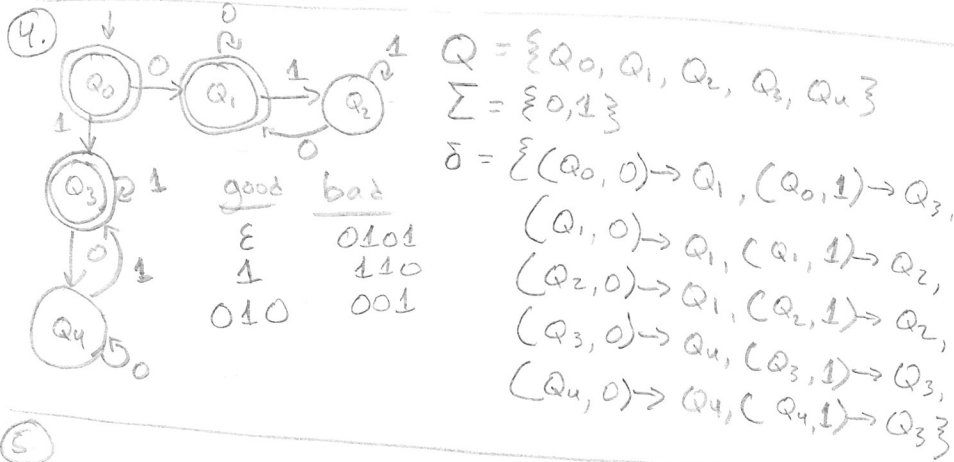 4.
0
Q0 0 Q1 1 Q2 1
0
1
Q3 1
0 1
Q4 0
good bad
ε 0101
1 110
010 001
Q = {Q0, Q1, Q2, Q3, Q4}
Σ = {0,1}
δ = {(Q0, 0)→ Q1, (Q0, 1)→ Q3,
(Q1, 0)→ Q1, (Q1, 1)→ Q2,
(Q2, 0)→ Q1, (Q2, 1)→ Q2,
(Q3, 0)→ Q4, (Q3, 1)→ Q3,
(Q4, 0)→ Q4, (Q4, 1)→ Q3}
5